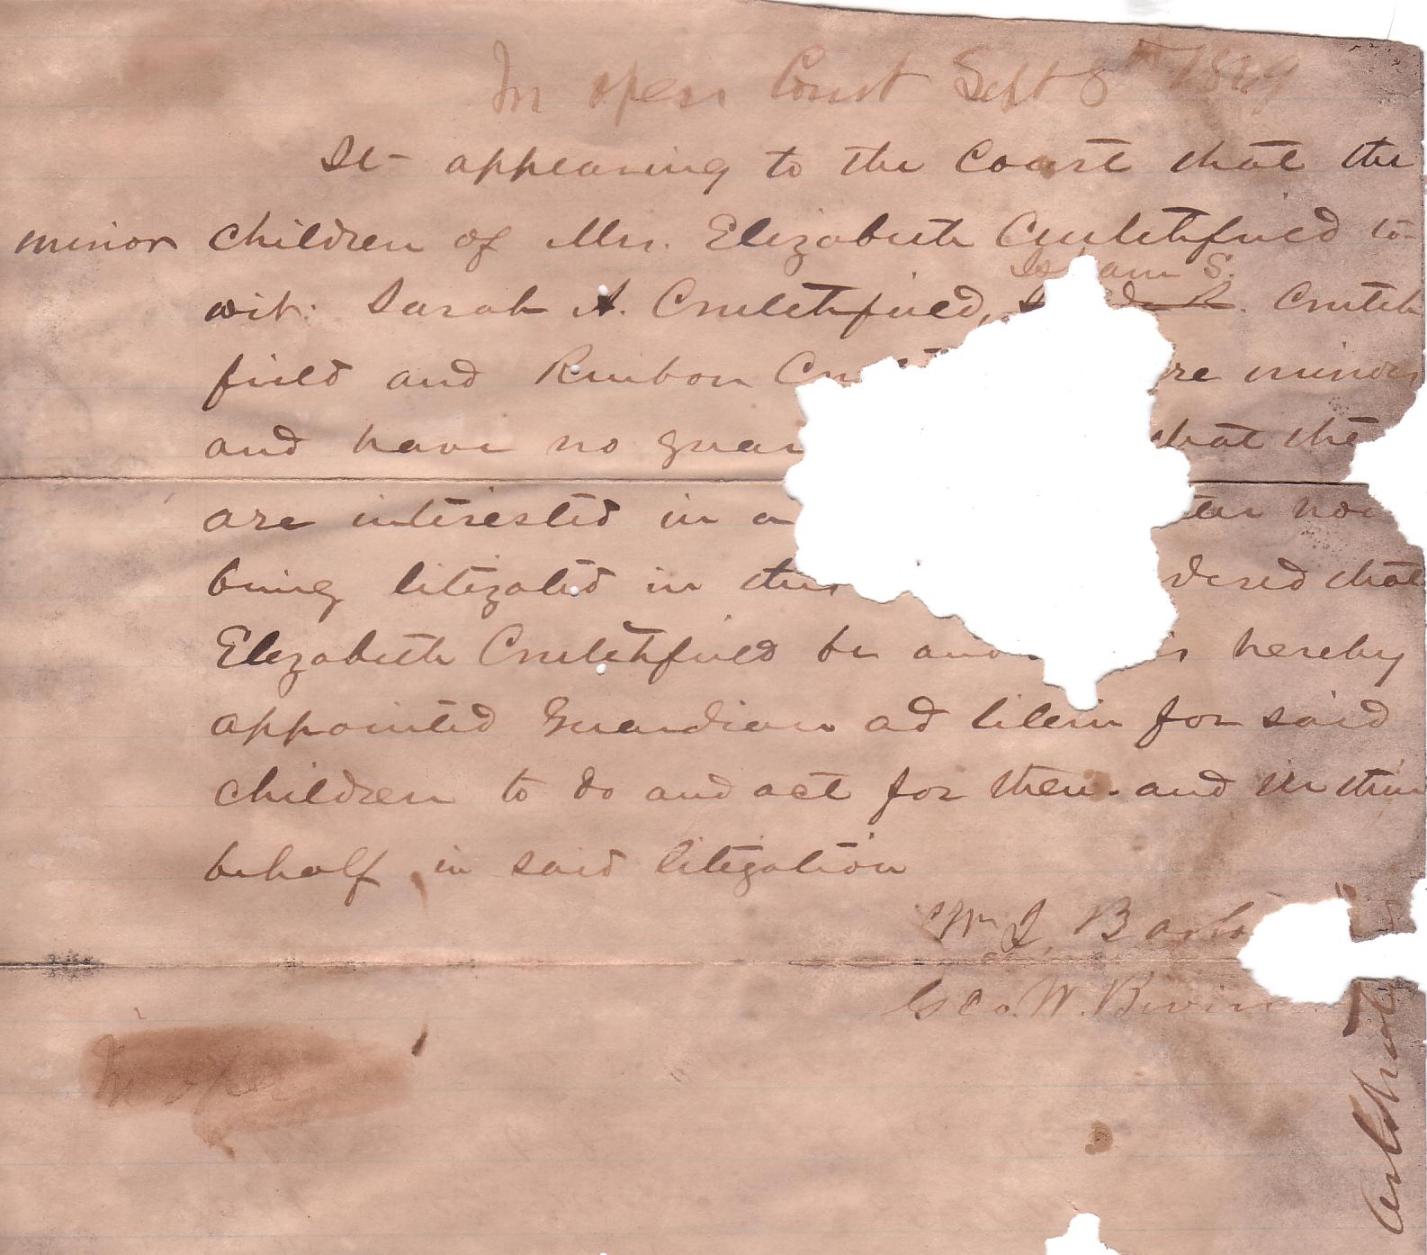 In open Court Sept 8th 18
It appearing to the Court that the
minor children of Mrs. Elizabeth Crutchfield to
wit: Sarah A. Crutchfield, am S. Crutch
field and Reubon Cru re minors
and have no guar that the
are interested in a ter now
being litigated in this dered that
Elizabeth Crutchfield be and is hereby
appointed Guardian ad litem for said
children to do and act for them and in their
behalf in said litigation
Wm J. Ba
Geo. W. Bivin
In ope